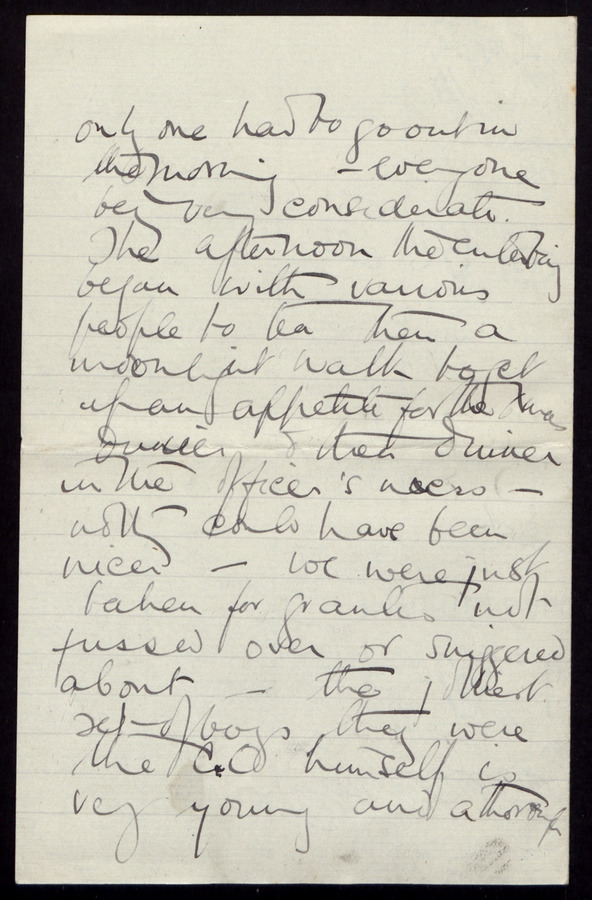 only one had to go out in
the morning - everyone
being very considerate.
The afternoon the entertaining
began with various
people to tea then a
moonlight walk to get
up an appetite for the Xmas
Dinner & then dinner
in the Officer's mess -
nothg could have been
nicer - we were just
taken for granted not
fussed over or sniggered
about - the jolliest
set of boys they were
the C.O himself is
very young and a thorough